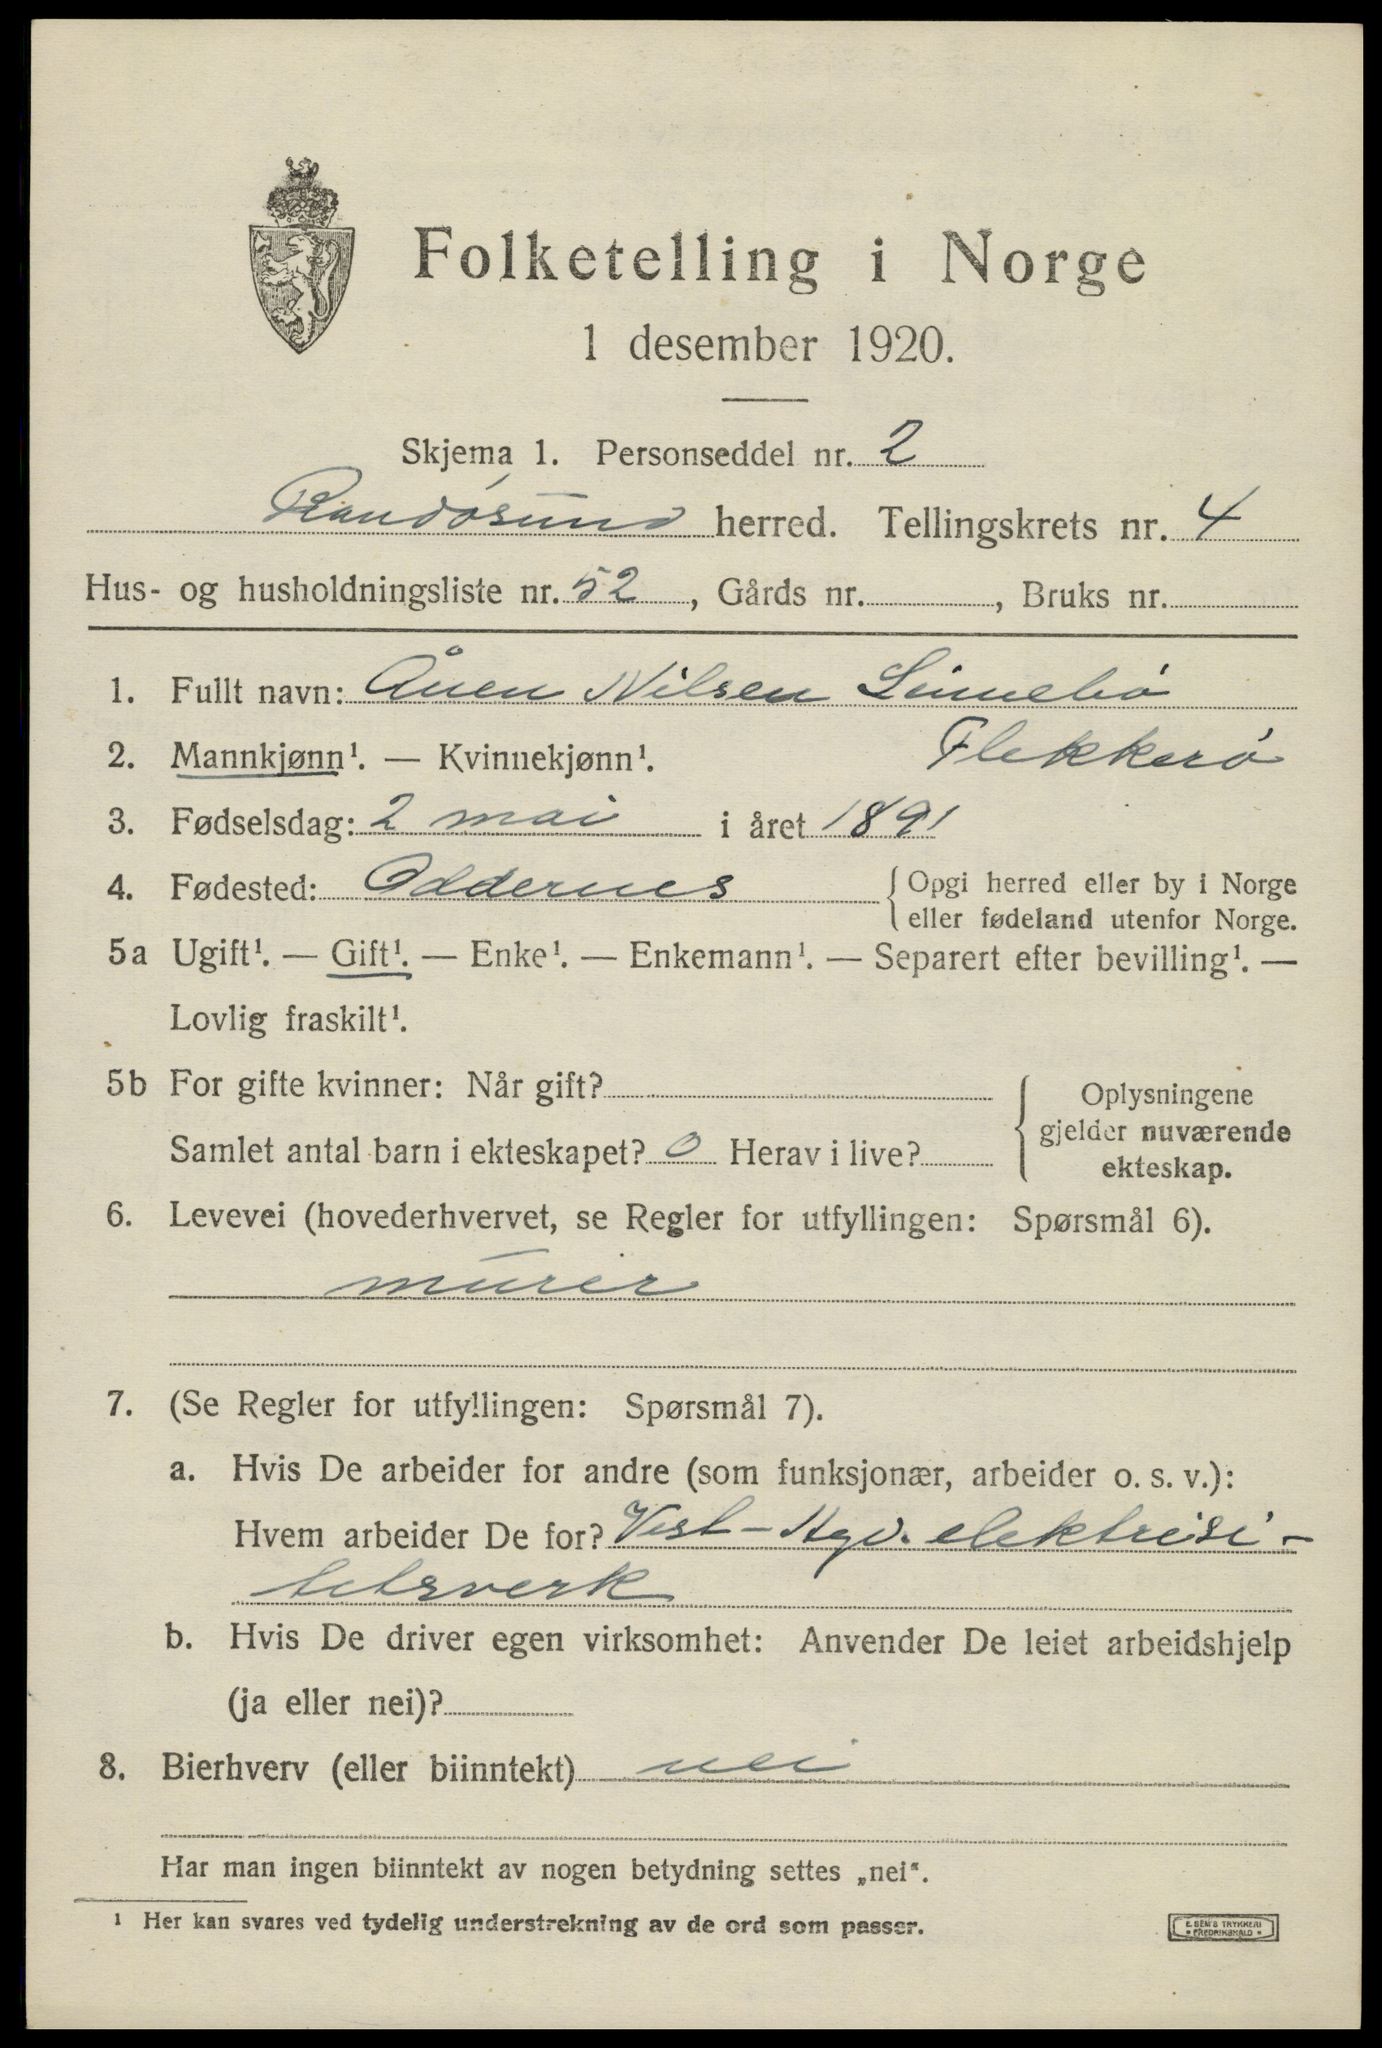 Folketelling i Norge
1 desember 1920.
Skjema 1. Personseddel nr. 2
Randøsund herred. Tellingskrets nr. 4
Hus- og husholdningsliste nr. 52, Gårds nr. , Bruks nr.
1. Fullt navn: Ånen Nilsen Linnebö
Flekkerö
2. Mannkjønn¹. — Kvinnekjønn¹.
3. Fødselsdag: 2 mai i året 1891
4. Fødested: Oddernes { Opgi herred eller by i Norge
eller fødeland utenfor Norge.
5a Ugift¹. — Gift¹. — Enke¹. — Enkemann¹. — Separert efter bevilling¹. —
Lovlig fraskilt¹.
5b For gifte kvinner: Når gift?
Samlet antal barn i ekteskapet? 0 Herav i live?
Oplysningene
gjelder nuværende
ekteskap.
6. Levevei (hovederhvervet, se Regler for utfyllingen: Spørsmål 6).
murer
7. (Se Regler for utfyllingen: Spørsmål 7).
a. Hvis De arbeider for andre (som funksjonær, arbeider o. s. v.):
Hvem arbeider De for? Vest-Agd. elektrisi-
tetsverk
b. Hvis De driver egen virksomhet: Anvender De leiet arbeidshjelp
(ja eller nei)?
8. Bierhverv (eller biinntekt) nei
Har man ingen biinntekt av nogen betydning settes „nei“.
¹ Her kan svares ved tydelig understrekning av de ord som passer.
E. SEM'S TRYKKERI
FREDRIKSHALD